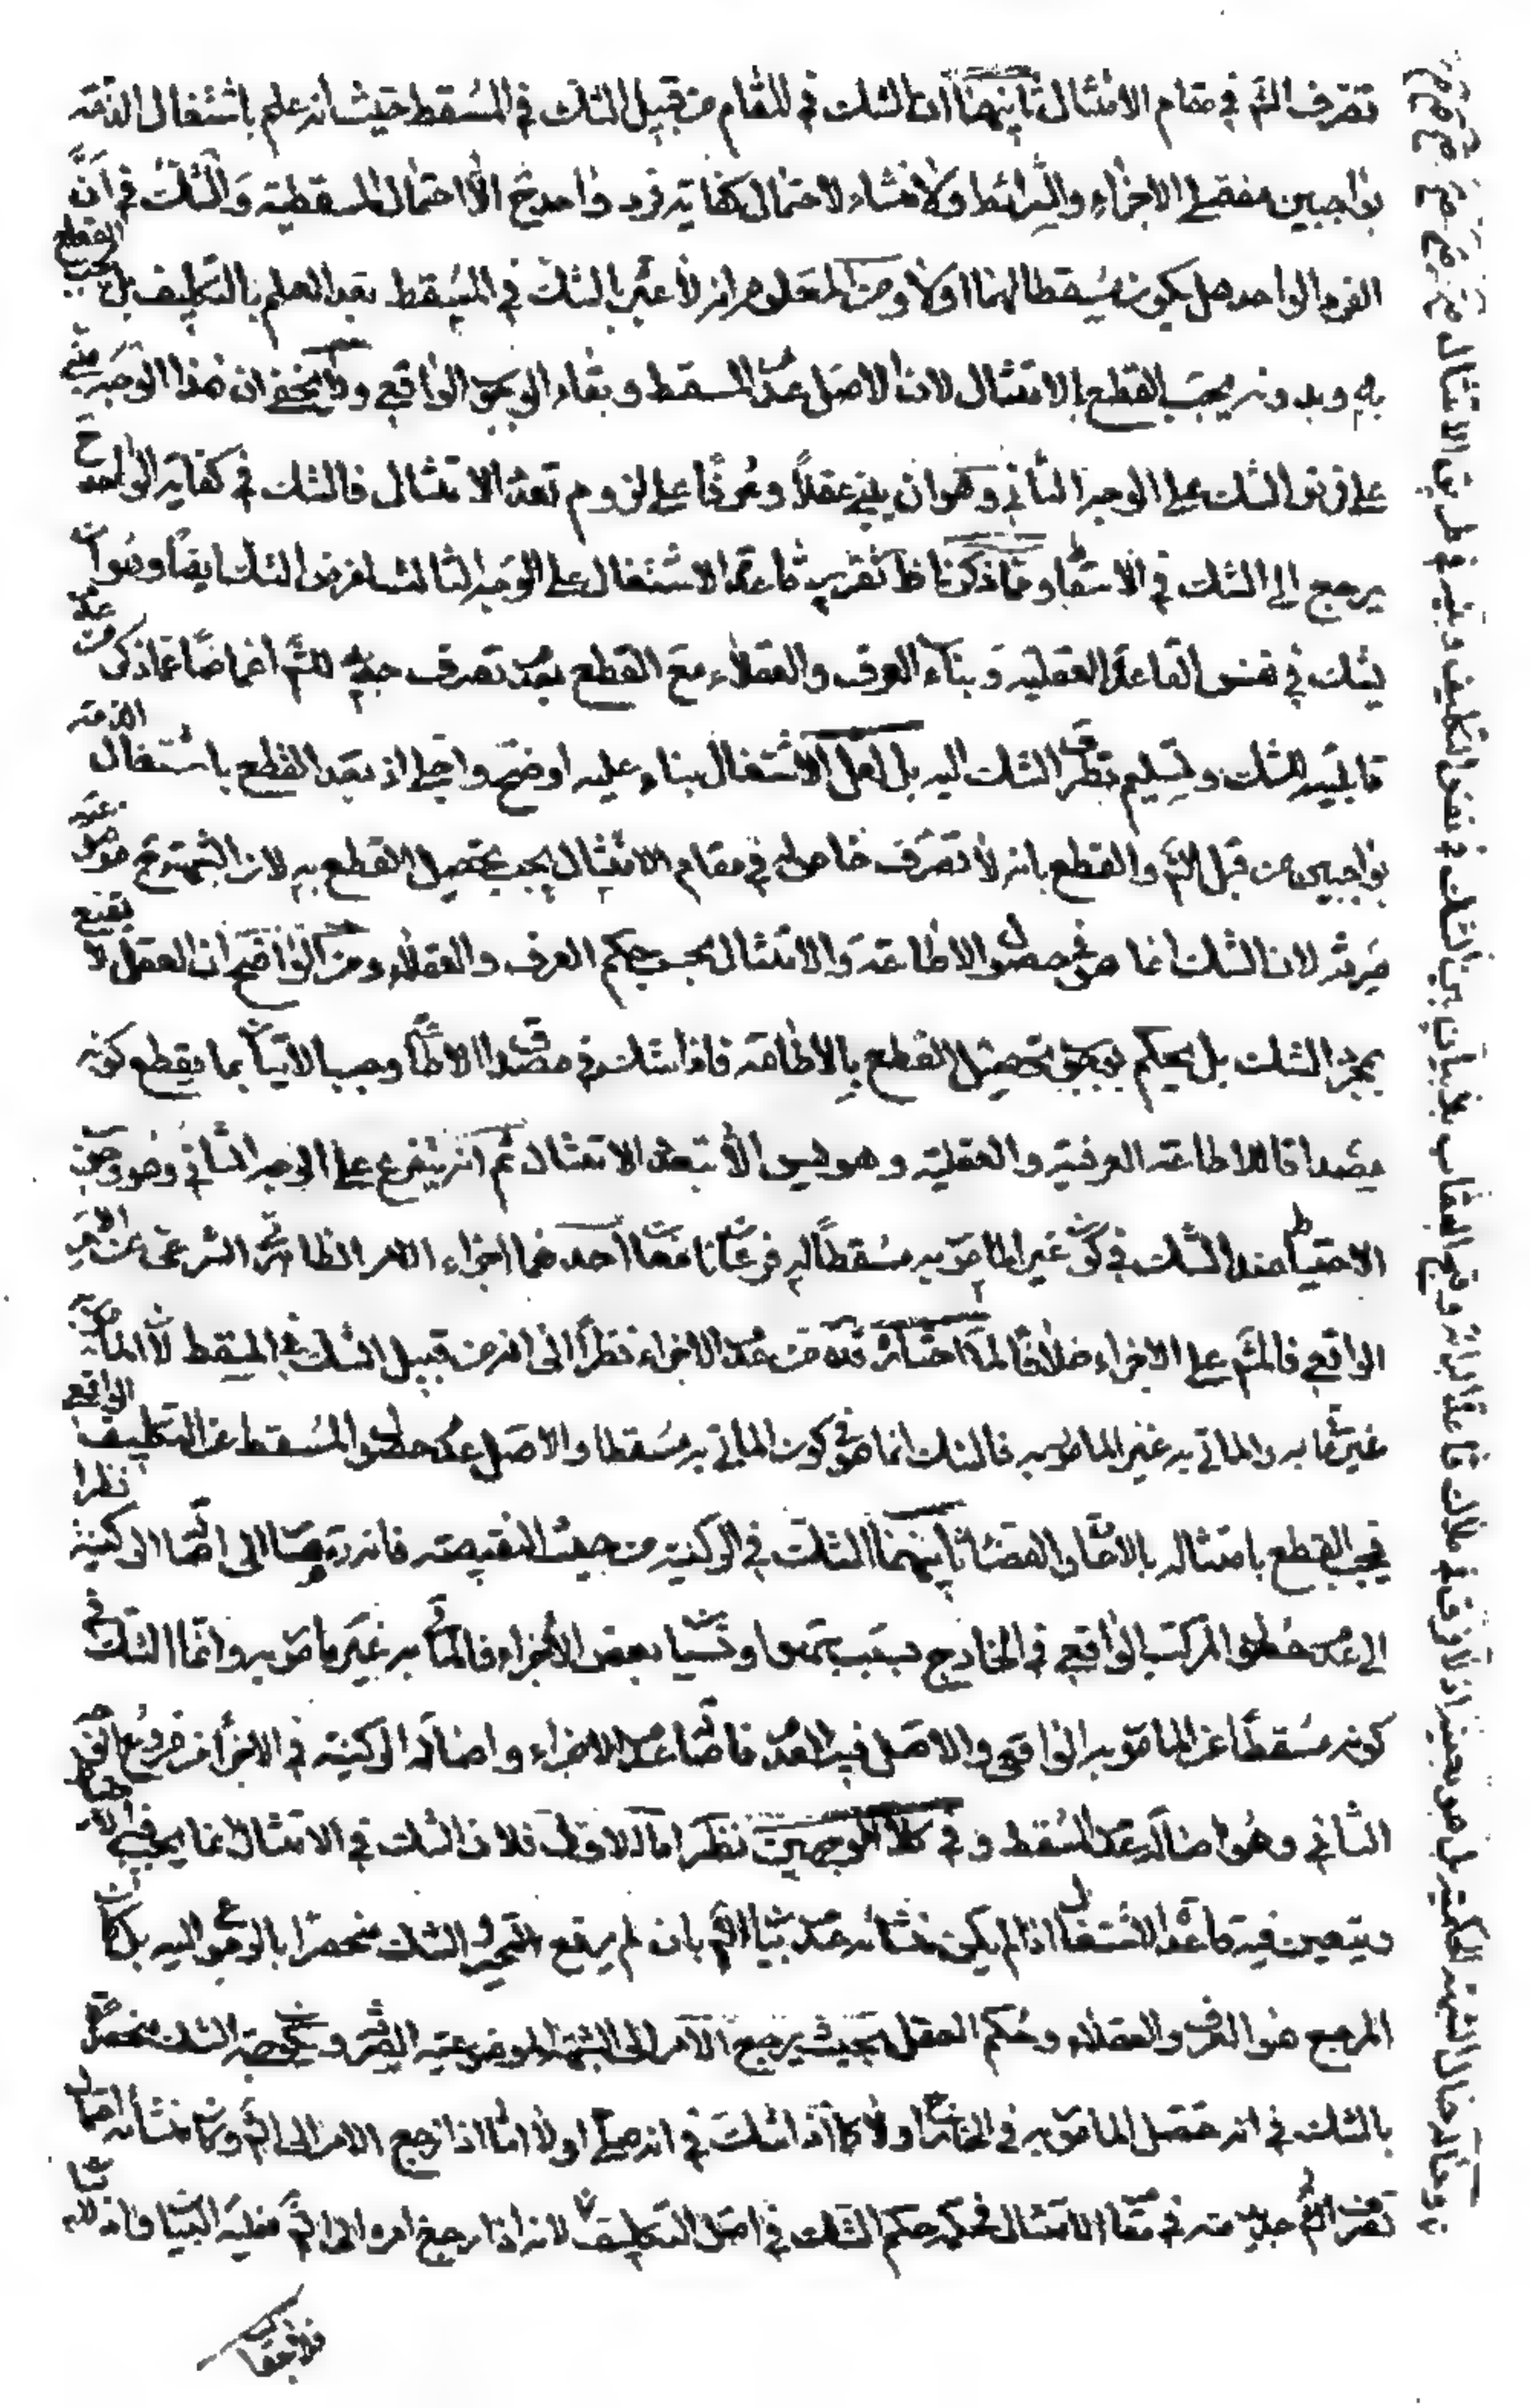 تصرف الشم في مقام الامتثال ثانيهما ان الشك في المقام من قبيل الشك في المسقط حيث انه علم باشتغال الذمة
بواجبين مفصلي الاجزاء والشرائط ولا منشاء لاحتمال كفاية فرد واحد ح الا احتمال المسقطية والشك في ان
الفرد الواحد هل يكون مسقطا لهما اولا ومن المعلوم انه لا عبرة بالشك في المسقط بعد العلم بالتكليف بل يجب القطع
به وبدونه يجب القطع بالامتثال لان الاصل عدم المسقط وبقاء الوجوب الواقعي ولا يخفى ان هذا الوجه مبني
على فرض الشك على الوجه الثاني وهو ان يبني عقلاً وعرفاً على لزوم تعدد الامتثال فالشك في كفاية الواحد ح
يرجع الى الشك في الاسقاط ومما ذكرنا ظ تقرير قاعدة الاشتغال على الوجه الثالث من الشك ايضاً وهو ان
يشك في نفس القاعدة العقلية وبناء العرف والعقلاء مع القطع بعدم تصرف جديد للشم اغماضاً عما ذكر من عدم
قابليته للشك وتسليم تطرق الشك اليه بل لعل الاشتغال بناء عليه اوضح واجلى اذ بعد القطع باشتغال الذمة
بواجبين من قبل الشم والقطع بانه لا تصرف خاص له في مقام الامتثال يجب تحصيل القطع به لان الشبهة ح موضوعية
صرفة لان الشك انما هو في حصول الاطاعة والامتثال بحسب حكم العرف والعقلاء ومن الواضح ان العقل لا يقنع
بمجرد الشك بل يحكم بوجوب تحصيل القطع بالاطاعة فاذا شك في مصداق الاطاعة وجب الاتيان بما يقطع كونه
مصداقا للاطاعة العرفية والعقلية وهو ليس الا بتعدد الامتثال ثم انه يتفرع على الوجه الثاني وهو وجوب
الاحتياط عند الشك في كون غير المامور به مسقطاً له فرعان نافعان احدهما اجزاء الامر الظاهري الشرعي عن الامر
الواقعي فالشم على الاجزاء خلافا لما اختاره قده من عدم الاجزاء نظراً الى انه من قبيل الشك في المسقط لان المامور به
غير ماتي به والماتي به غير المامور به فالشك انما هو في كون الماتي به مسقطا والاصل عدم حصول المسقط عن التكليف الواقعي
فيجب القطع بامتثاله بالاعادة والقضاء ثانيهما الشك في الركنية من حيث النقيصة فانه ره ذهب الى اصالة الركنية نظرا
الى عدم حصول المركب الواقعي في الخارج بسبب نسيان بعض الاجزاء فالماتي به غير مامور به وانما الشك في
كونه مسقطاً عن المامور به الواقعي والاصل فيه العدم فاصالة عدم الاجزاء واصالة الركنية في الاجزاء من فروع الوجه
الثاني وهو اصالة عدم المسقط وفي كلا الوجهين نظر اما الاول فلان الشك في الامتثال انما يجب فيه الاحتياط
ويتعين فيه قاعدة الاشتغال اذا لم يكن منشائه عدم بيان الشم بان لم يرتفع التحير والشك منحصرا بالرجوع اليه بل كان
المرجع هو العرف والعقلاء وحكم العقل بحيث يرجع الامر الى الشبهة الموضوعية الصرفة ويكون جهة الشك منحصرة
بالشك في انه حصل المامور به في الخارج اولا كما اذا شك في انه صلى اولا اما اذا رجع الامر الى الشم وكان منشائه احتمال
تصرف الشم جديد منه في مقام الامتثال فحكمه حكم الشك في اصل التكليف لانه اذا رجع امره الى الشم فعليه البيان فاذا لم